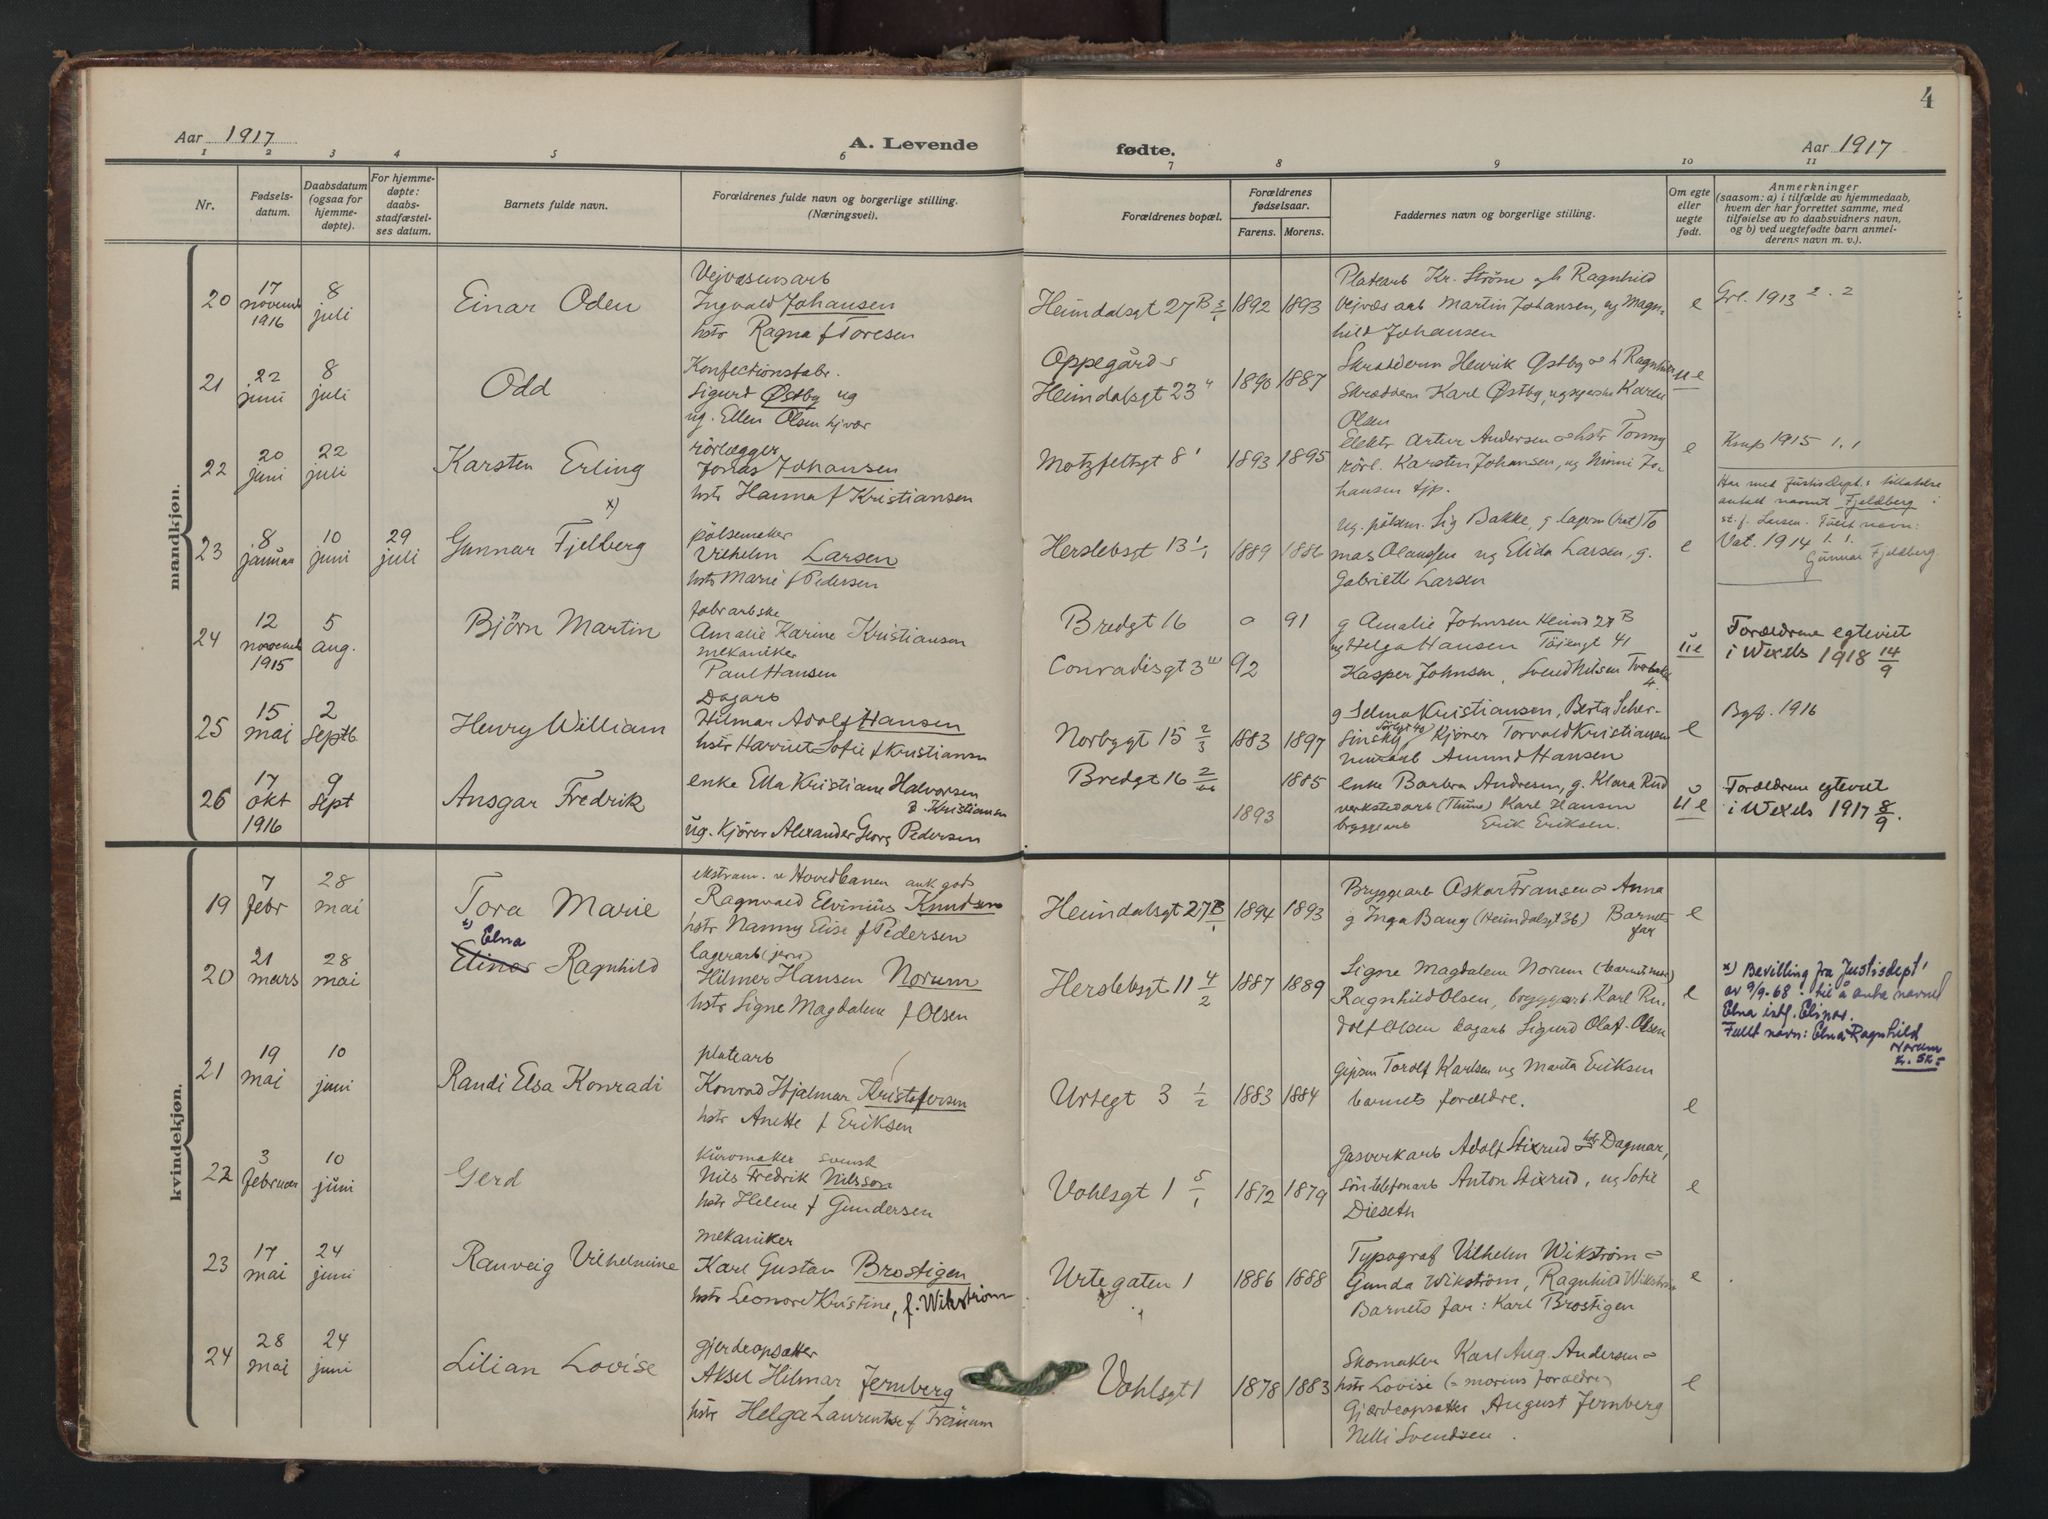 4
Aar 1917
A. Levende
fødte.
Aar 1917
1 2 3 4 5 6 7 8 9 10 11
Nr.
Fødsels-
datum.
Daabsdatum
(ogsaa for
hjemme-
døpte).
For hjemme-
døpte:
daabs-
stadfæstel-
ses datum.
Barnets fulde navn.
Forældrenes fulde navn og borgerlige stilling.
(Næringsvei).
Forældrenes bopæl.
Forældrenes
fødselsaar.
Farens. Morens.
Faddernes navn og borgerlige stilling.
Om egte
eller
uegte
født.
Anmerkninger
(saasom: a) i tilfælde av hjemmedaab,
hvem der har forrettet samme, med
tilføielse av to daabsvidners navn,
og b) ved uegtefødte barn anmel-
derens navn m. v.).
mandkjøn.
20
17
novemb
1916
8
juli
Einar Oden
Vejvæsensarb
Ingvald Johansen
hstr Ragna f Toresen
Heimdalsgt 27 B 3/1
1892 1893
Platearb Kr. Strøm og h Ragnhild
Vejvæs arb Martin Johansen, ug Magn-
hild Johansen
e
Grl. 1913 2. 2
21
22
juni
8
juli
Odd
Konfectionsfabr.
Sigurd Østby ug
ug. Ellen Olsen
Oppegård
Heimdalsgt 23
1890 1887
Henrik Østby h Ragnhild
Karl Østby, Karen
Olsen
u e
22
20
juni
22
juli
Karsten Erling
rörlægger
Jonas Johansen
hstr Hanna f Kristiansen
Motzfeltsgt 8
1893 1895
Elektr Artur Andersen hstr Tonny
rörl. Karsten Johansen, ug Nimi Jo-
hansen tjp.
e
Kmp 1915 1. 1
23
8
januar
10
juni
29
juli
Gunnar Fjelberg
x)
pölsemaker
Vilhelm Larsen
hstr Marie f Pedersen
Herslebsgt 13 1/1
1889 1886
ug. Sig Bakke, g lagerm To
mas Olaussen ug Elida Larsen, g.
Gabriell Larsen
e
Har med Justisdept.s tillatelse
antatt navnet Fjeldberg i
st. f. Larsen. Fullt navn:
Vat. 1914 1. 1.
Gunnar Fjeldberg.
24
12
novemb
1915
5
aug.
Björn Martin
fabrarbske
Amalie Karine Kristiansen
mekaniker
Paul Hansen
Bredgt 16
Conradisgt 3
o 91
92
g Amalie Johnsen Heimd 27 B
ug Helga Hansen Töiengt 41
Kasper Johnsen, Svend Nilsen
4.
ue
Forældrene egteviet
i Wexels 1918 14/9
25
15
mai
2
Septb
Henry William
Dagarb
Hilmar Adolf Hansen
hstr Harriet Sofie f Kristiansn
Norbygt 15 2/3
1883 1897
g Selma Kristiansen, Berta Scher-
sinsky Kjörer Torvald Kristiansen
Amund Hansen
e
Bgf. 1916
26
17
okt
1916
9
Sept
Ansgar Fredrik
enke Ella Kristiane Halvorsen
f Kristiansen
ug. Kjörer Alexander Georg Pedersen
Bredgt 16
1885
1893
enke Barbra Andresen, g. Klara Rud
verkstedarb (Thune) Karl Hansen
bryggearb Erik Eriksen.
u e
Forældrene egteviet
i Wexels 1917 8/9.
kvindekjøn.
19
7
febr
28
mai
Tora Marie
ekstram. v Hovedbanen ank gods
Ragnvald Elvinius Knudsen
hstr Nanny Elise f Pedersen
Heimdalsgt 27 B
1894 1893
Bryggearb Oskar Fransen Anna
g Inga Bang (Heimdalsgt 36) Barnets
far
e
20
21
mars
28
mai
x) Elna
Elinor Ragnhild
lagerarb (jern)
Hilmer Hansen Norum
hstr Signe Magdalene f Olsen
Herslebsgt 11 4/2
1887 1889
Signe Magdalene Norum (barnets mor)
Ragnhild Olsen, bryggearb Karl Ru-
dolf Olsen dagarb Sigurd Olaf Olsen
e
x) Bevilling fra Justisdept
av 9/9-68 til å anta navnet
Elna istf. Elinor.
Fullt navn: Elna Ragnhild
Norum
21
19
mai
10
juni
Randi Elsa Konradi
platearb
Konrad Hjalmar Kristofersen
hstr Anette f Eriksen
Urtegt 3 1/2
1883 1884
gipsm Torolf Karlsen ug Marta Eriksen
barnets forældre.
e
22
3
februar
10
juni
Gerd
kuromaker svensk
Nils Fredrik Nilsson
hstr Helene f Gundersen
Vahlsgt 1 5/1
1872 1879
Gasverkarb Adolf Stixrud hstr Dagmar,
Sön telefonarb Anton Stixrud, ug Sofie
Dieseth
e
23
17
mai
24
juni
Ranveig Vilhelmine
mekaniker
Karl Gustav Brostigen
hstr Leonore Kristine, f. Wikström
Urtegaten 1
1886 1888
Typograf Vilhelm Wikström
Gunda Wikström, Ragnhild Wikström
Barnets far: Karl Brostigen
e
24
28
mai
24
juni
Lilian Lovise
gjerdeopsætter
Aksel Hilmar Jernberg
hstr Helga Laurentse f Tranum
Vahlsgt 1
1878 1883
Skomaker Karl Aug. Andersen
hstr Lovise (morens forældre)
Gjærdeopsætter August Jernberg
Nelli Svendsen.
e